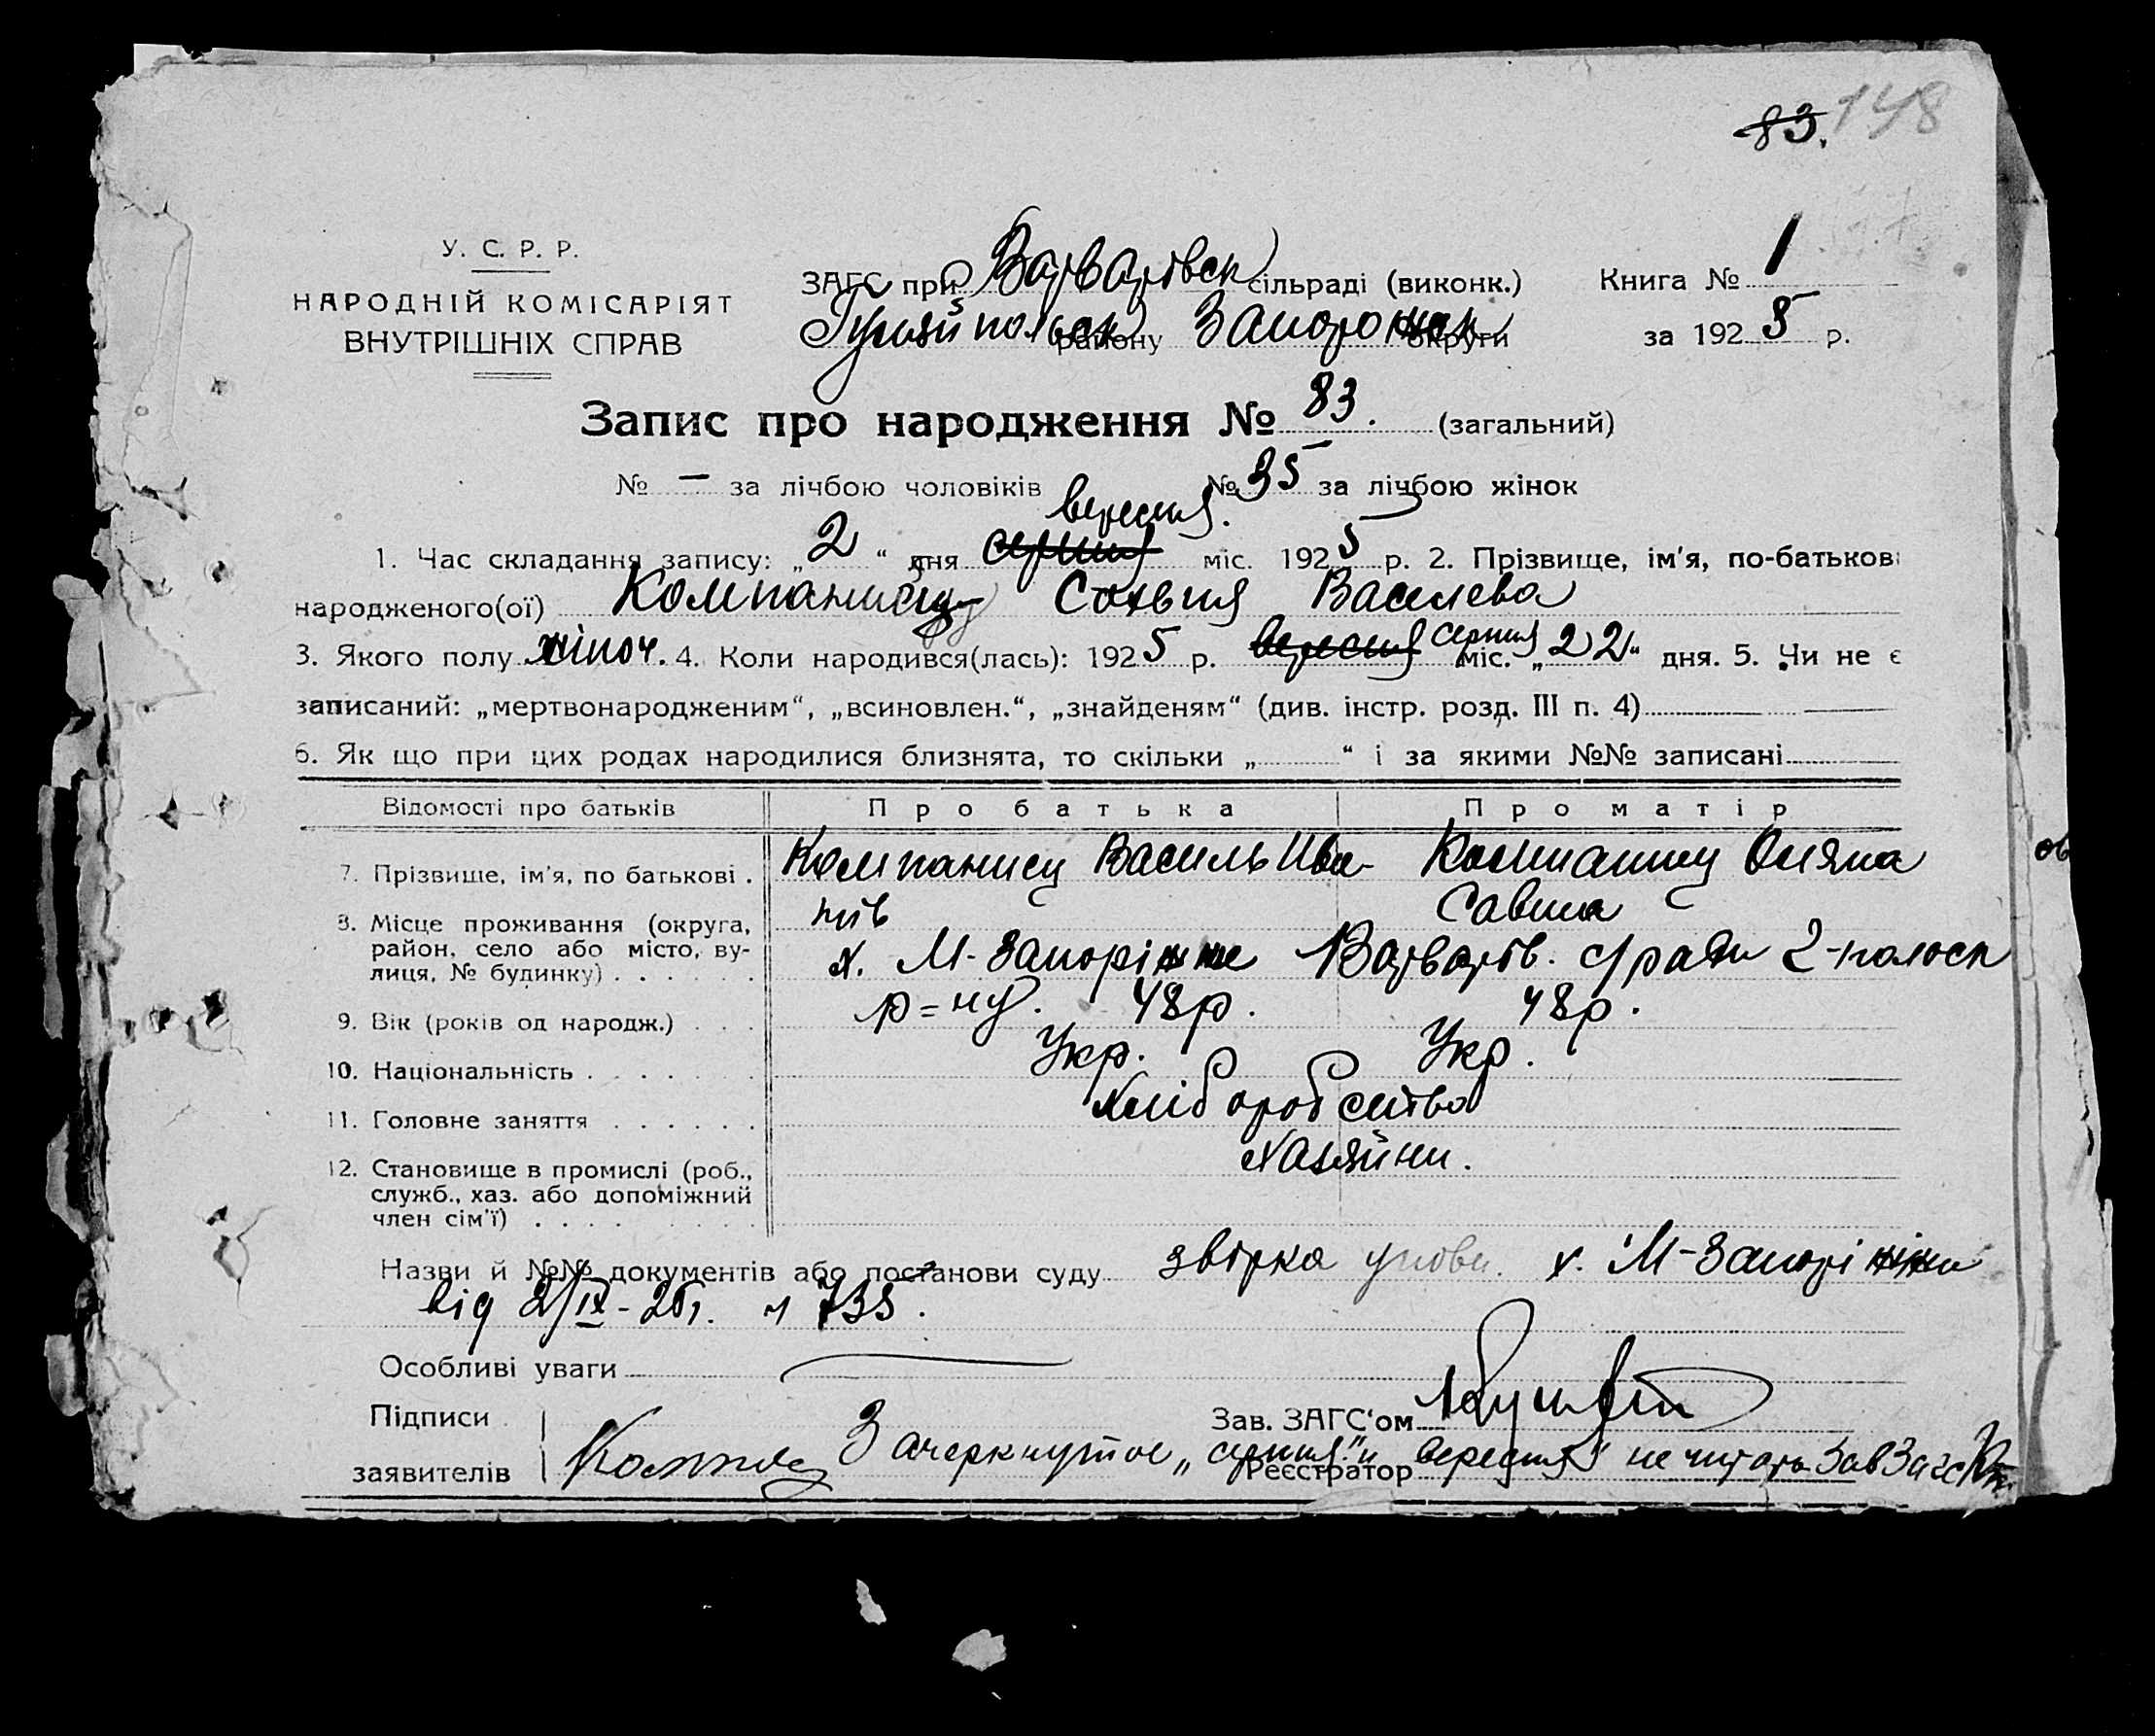 83. 148
У. С. Р. Р.
НАРОДНІЙ КОМІСАРІЯТ
ВНУТРІШНІХ СПРАВ
ЗАГС при Варварівск сільраді (виконк.)
Гуляйпольск району Запорожск округи
Книга № 1
за 1925 р.
Запис про народження № 83. (загальний)
№ – за лічбою чоловіків № 35 за лічбою жінок
вересня.
1. Час складання запису: „2“ дня серпня міс. 1925 р. 2. Прізвище, ім'я, по-батькові
народженого(ої) Компаниец Софія Василева
3. Якого полу жіноч. 4. Коли народився(лась): 1925 р. вересня серпня міс. „22“ дня. 5. Чи не є
записаний: „мертвонародженим“, „всиновлен.“, „знайденям“ (див. інстр. розд. III п. 4)
6. Як що при цих родах народилися близнята, то скільки „ “ і за якими №№ записані
Відомості про батьків Про батька Про матір
7. Прізвище, ім'я, по батькові . Компаниец Василь Іва- Компаниец Оляна
нів Савина
8. Місце проживання (округа,
район, село або місто, ву-
лиця, № будинку) . . . . . . х. М-Запоріжже Варварів. с/ради Г-польск
р=ну. 48р. 48р.
9. Вік (років од народж.) . . .
10. Національність . . . . . . . Укр. Укр.
11. Головне заняття . . . . . . Хліборобство
12. Становище в промислі (роб.,
служб., хаз. або допоміжний
член сім'ї) . . . . . . . . . Хазяїни.
Назви й №№ документів або постанови суду звірка уповн. х. М-Запоріжжя
від 2/IX-25р. ч 733.
Особливі уваги
Підписи Зав. ЗАГС'ом
заявителів Реєстратор
Зачеркнутое „серпня“ и „вересня“ не читать ЗавЗагс